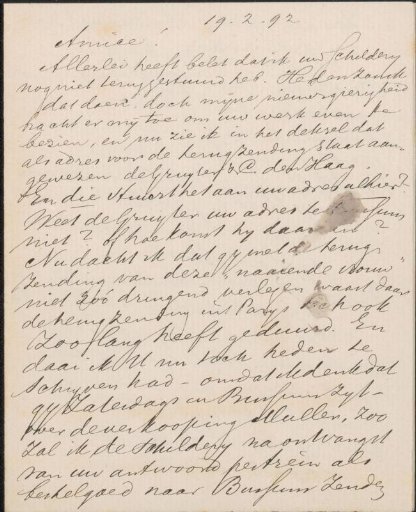 19-2-92
Amice!
Allerlei heeft belet dat ik uw schildery
nog niet teruggestuurd heb. Heden zou ik
dat doen, doch mijne nieuwsgierigheid
bracht er my toe om uw werk even te
bezien, en nu zie ik in het deksel dat
als adres voor de terugzending staat aan-
gewezen de Gruyter & C. den Haag.
En die stuurt het aan uw adres alhier?
Weet de Gruyter uw adres te Bussum
niet? of hoe komt hy daar in?
Nu dacht ik dat gy met de terug-
zending van deze "naaiende vrouw"
niet zoo dringend verlegen waart daar
de terugzending uit Parys toch ook
zoo lang heeft geduurd. En
daar ik U nu toch heden te
schryven had - omdat ik denk dat
gy Zaterdags in Bussum zyt -
over de verkooping Muller, zoo
zal ik de schildery na ontvangst
van uw antwoord per trein als
bestelgoed naar Bussum zenden